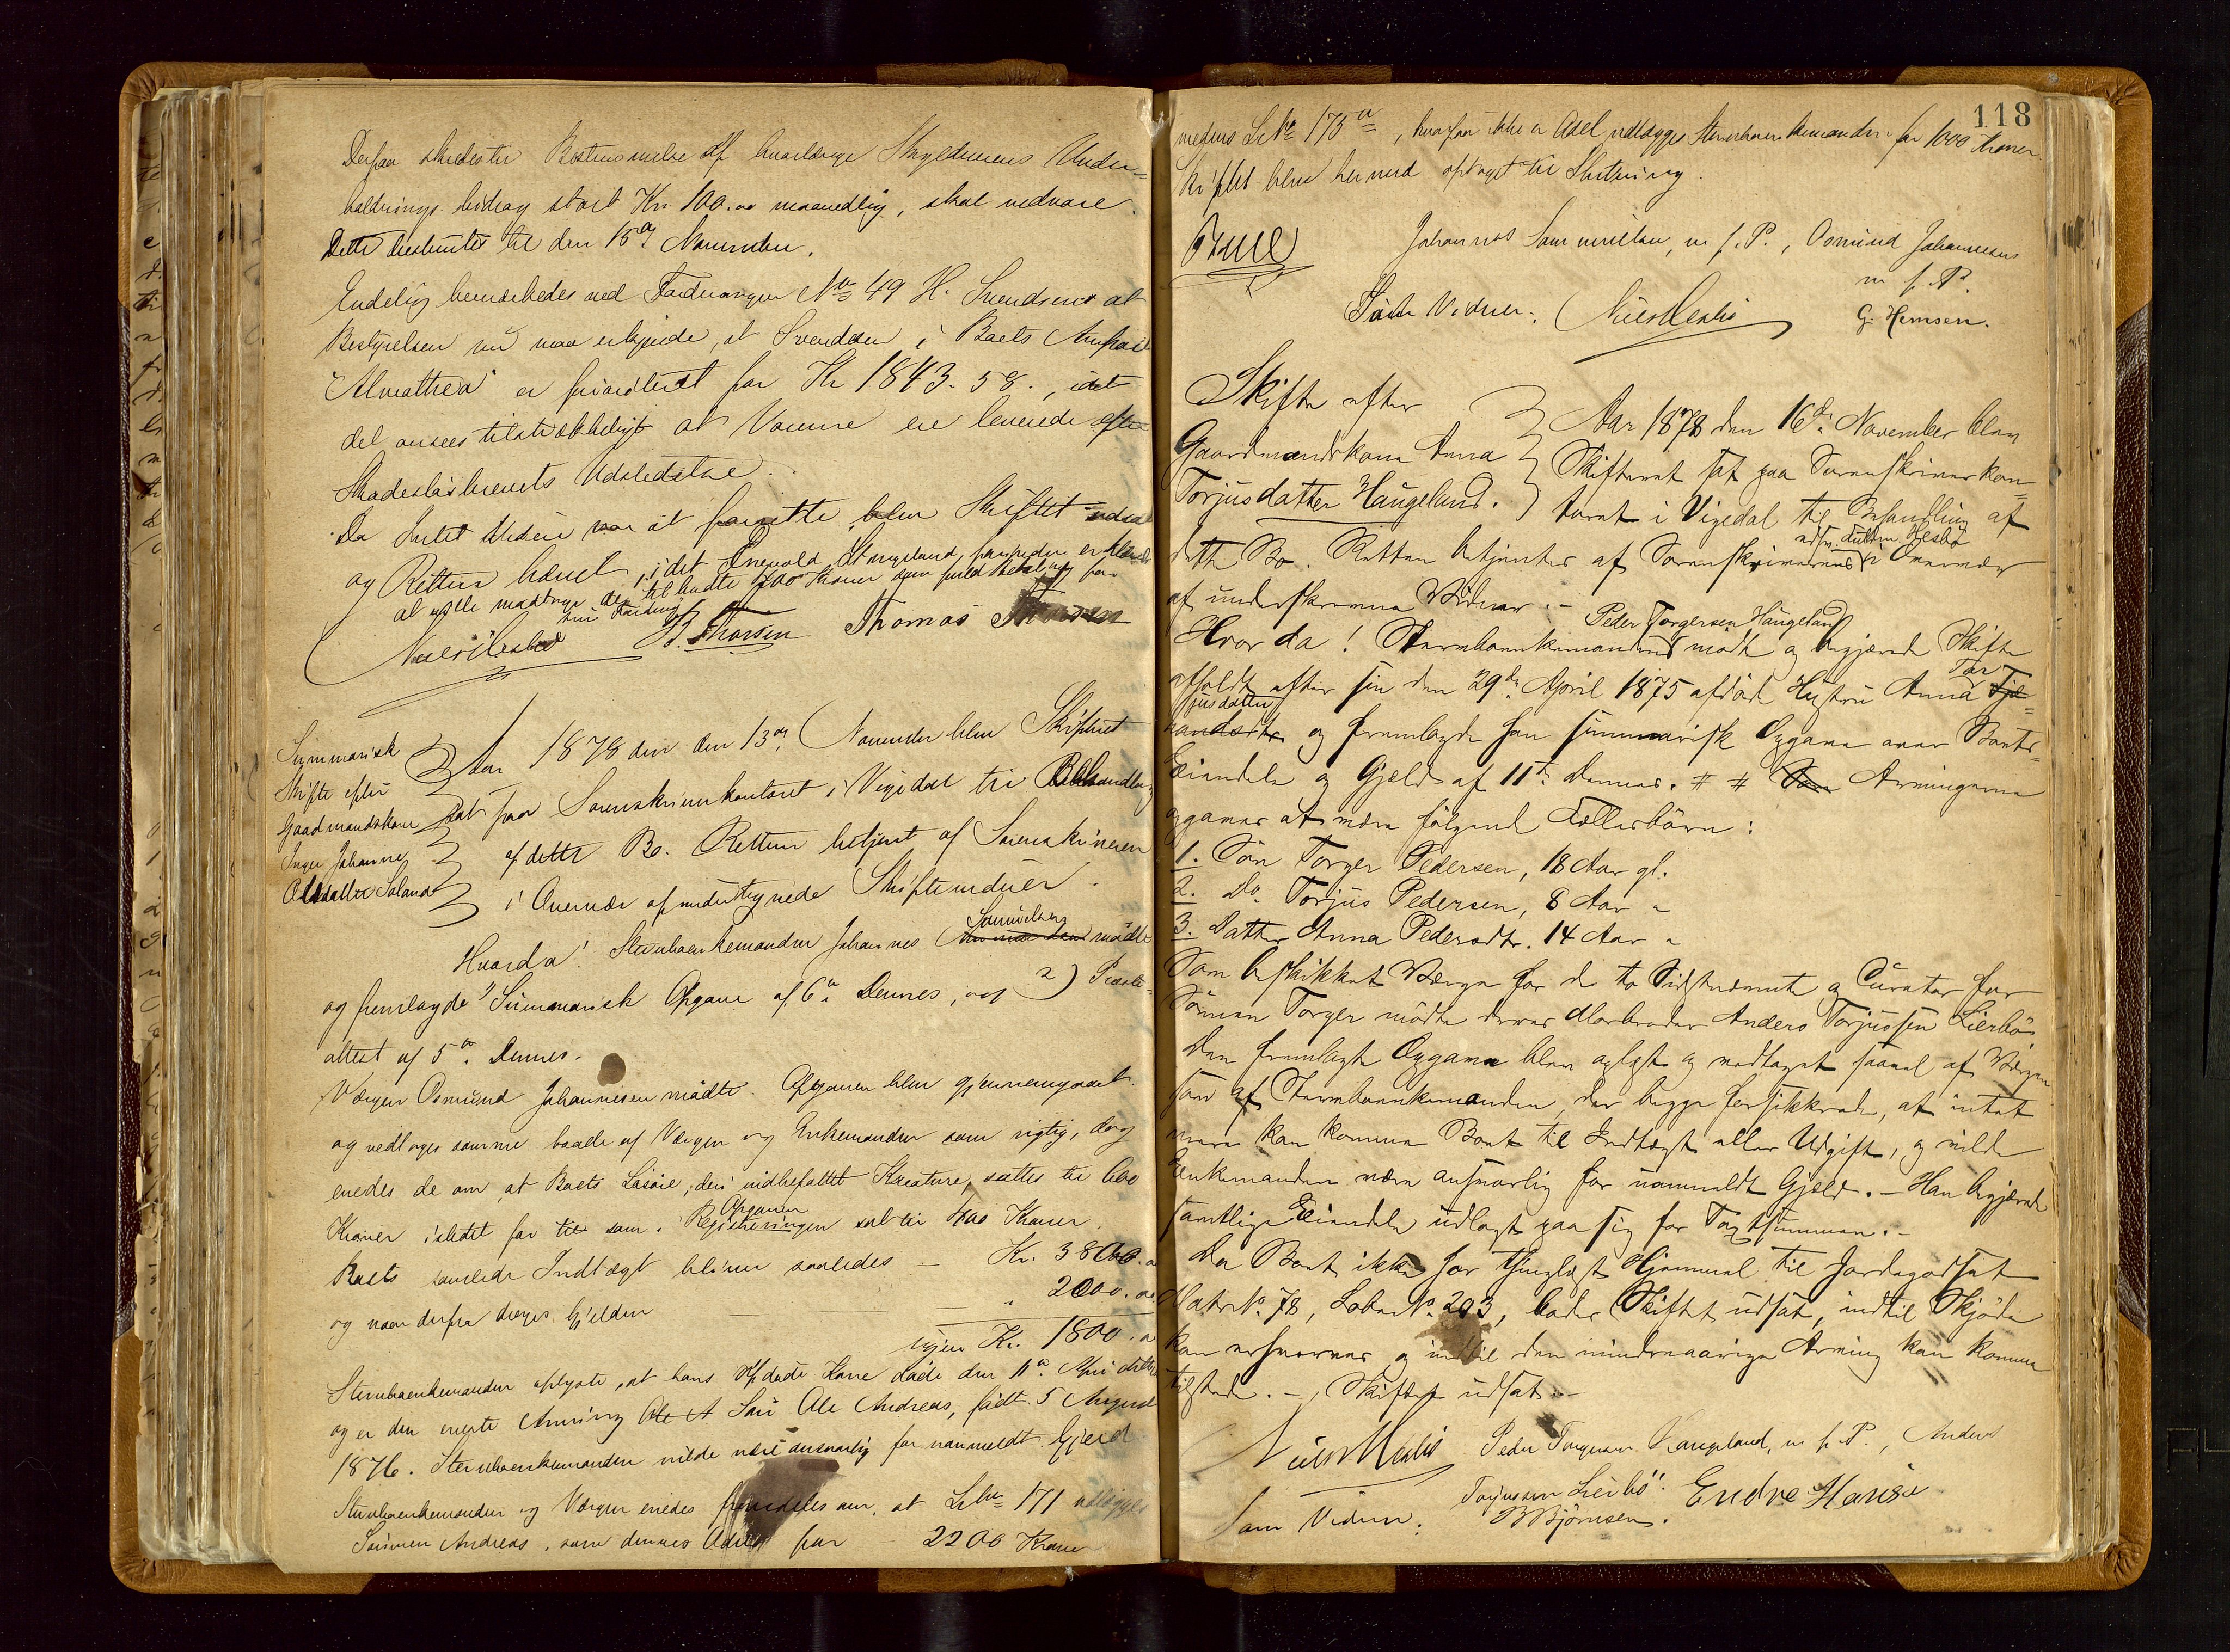 Derpaa skredes til Bestemmelse af hvorlænge Skyldnerens Under-
holdnings bidrag stort Kr 100.00 maanedlig, skal vedvare.
Dette bestemtes til den 15de November.
Endelig bemærkedes ved Fordringen No 49 H. Svendsens at
Bestyrelsen nu maa erkjende, at Svendsen i Boets
"Almathea" er prioriteret for Kr 1843.58., idet
det ansees tilstrækkeligt at Varerne ere leverede efter
Skadesløsbrevets Udstedelse.
Da Intet videre var at foretage blev Skiftet udsat
og Retten hævet, idet Enevold Stangeland, forinden erklærede
at ville modtage de tilbudte 200 Kroner som fuld Betaling for
sin Fordring
Niels Hesbø B. Thorsen Thomas Thorsen
Summarisk
Skifte efter
Gaardmandskone
Inger Johanne
Olsdatter Soland
Aar 1878 den 13de November blev Skifteret
sat paa Sorenskriverkontoret i Vigedal til Behandling
af dette Bo. Retten betjent af Sorenskriveren
i Overvær af undertegnede Skiftevidner.
Hvorda! Sterbboenkemanden Johannes Samuelsen mødte
og fremlagde 1) Summarisk Opgave af 6te Dennes, og 2) Præste-
attest af 5te Dennes.
Værgen Osmund Johannesen mødte. Opgaven blev gjennemgaaet
og vedtoges samme baade af Værgen og Enkemanden som rigtig, dog
enedes de om at Boets Løsøre, deri indbefattet Kreature, sættes til 600
Kroner istedet for som i Registreringen Opgaven sat til 400 Kroner.
Boets samlede Indtægt bliver saaledes – Kr. 3800.00
og naar derfra drages Gjelden " 2000.00
igjen Kr. 1800.00
Sterbboenkemanden oplyste, at hans afdøde Kone døde den 11te April
og er den eneste Arving Søn Ole Andreas, født 5 August
1876. Sterbboenkemanden vilde være ansvarlig for uanmeldt Gjeld.
Sterbboenkemanden og Værgen enedes fremdeles om, at Lbn 171 udlægges
Sønnen Andreas, som dennes Odel for 2200 Kroner
118
medens Lb No 175a, hvorpaa ikke er Odel udlægges Sterbboenkemanden for 1600 Kroner.
Skiftet blev hermed optaget til Slutning.
Johannes Samuelsen, m. f. P., Osmund Johannesen
m. f. P.
Som Vidner: Niels Hesbø G. Hemsen.
Skifte efter
Gaardmandskone Anna
Torjusdatter Haugeland.
Aar 1878 den 16de November blev
Skifteret sat paa Sorenskriverkon-
toret i Vigedal til Behandling af
dette Bo. Retten betjentes af Sorenskriveren ved Fuldm. Hesbø i Overvær
af underskrevne Vidner. –
Hvor da! Sterbboenkemanden Peder Torgersen Haugeland mødte og begjærede Skifte
afholdt efter sin den 29de April 1875 afdøde Hustru Anna Tor
jusdatter og fremlagde han summarisk Opgave over Boets
Eiendele og Gjeld af 11te dennes. # # Arvingerne
opgaves at være følgende Fællesbørn:
1. Søn Torger Pedersen, 18 Aar gl.
2. Do. Torjus Pedersen, 8 Aar "
3. Datter Anna Pedersdtr. 14 Aar "
Som beskikket Værge for de to Sidstnævnte og Curator for
Sønnen Torger mødte deres Morbroder Anders Torjussen Lierbø.
Den fremlagte Opgave blev oplæst og vedtaget saavel af Værgen
som af Sterbboenkemanden, der begge forsikkrede, at intet
mere kan komme Boet til Indtægt eller Udgift, og vilde
Enkemanden være ansvarlig for uanmeldt Gjeld. – Han begjærede
samtlige Eiendele udlagt paa sig for Taxtsummen. –
Da Boet ikke har thinglæst Hjemmel til Jordegodset
Matr. No. 78, Løbe No. 203, bedes Skiftet udsat, indtil Skjøde
kan erhverves og indtil den mindreaarige Arving kan komme
tilstede. – Skiftet udsat. –
Niels Hesbø Peder Torgersen Haugeland, m. f. P., Anders
Torjussen Lierbø.
Som Vidner: B Bjørnsen. Endre Hansen